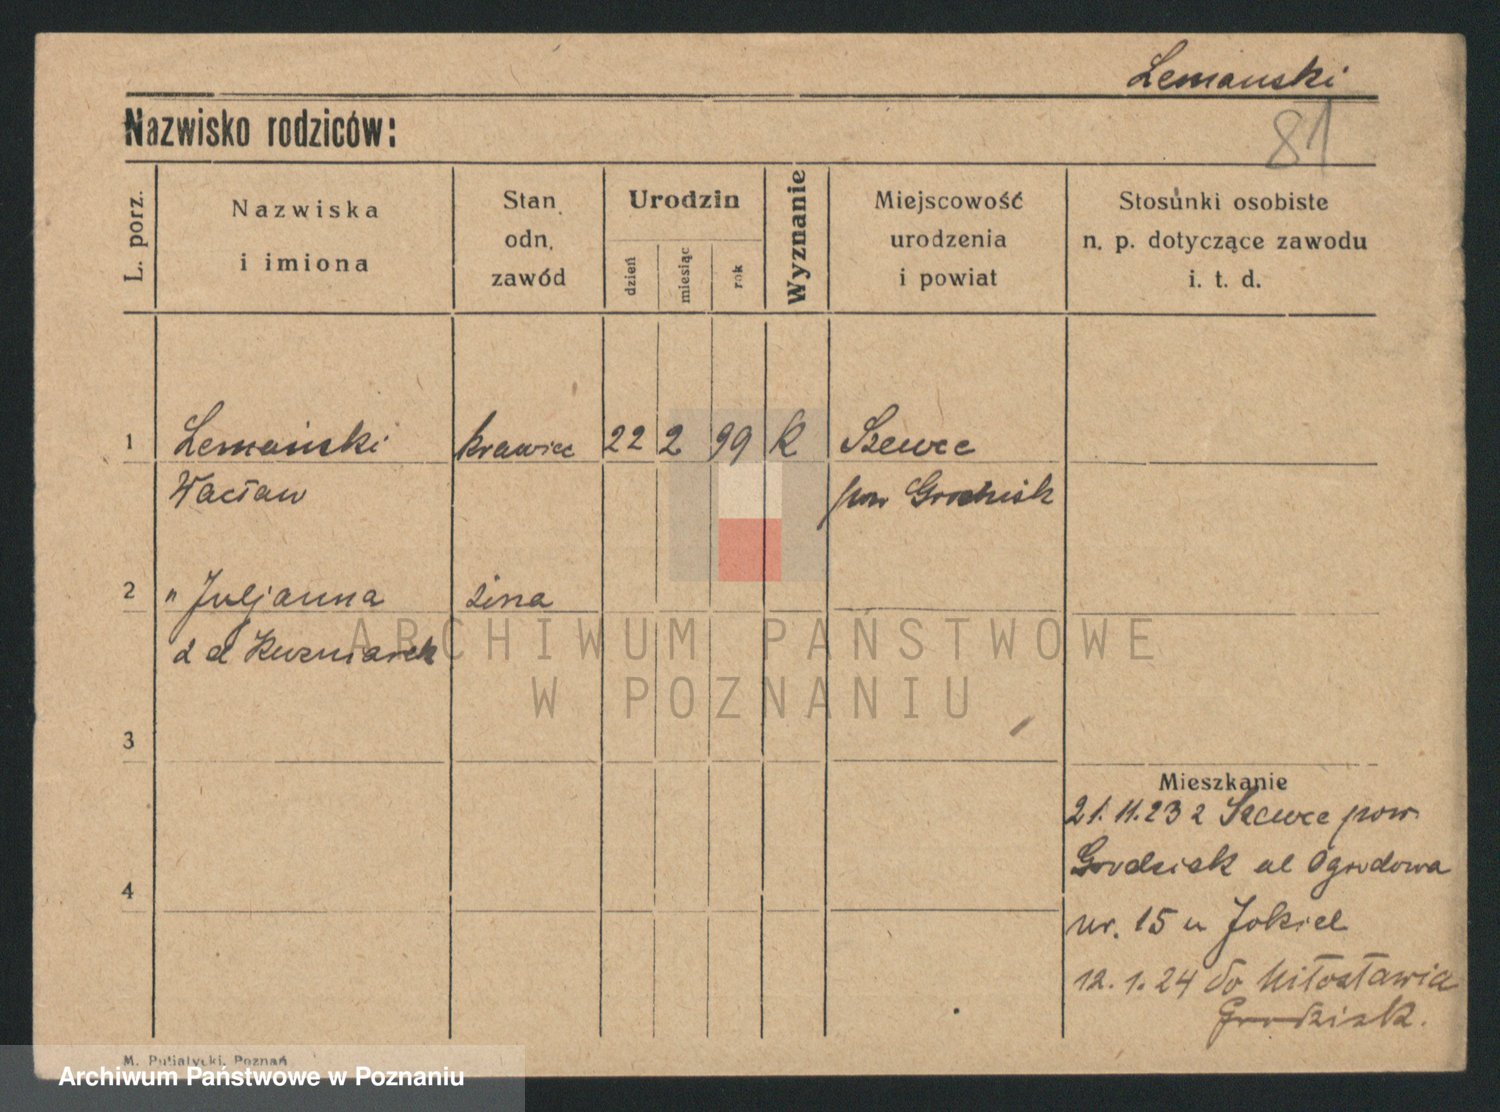 Lemanski
Nazwisko rodziców:
81
L. porz.
Nazwiska
i imiona
Stan
odn.
zawód
Urodzin
dzień
miesiąc
rok
Wyznanie
Miejscowość
urodzenia
i powiat
Stosunki osobiste
n. p. dotyczące zawodu
i. t. d.
1 Lemański krawiec 22 2 99 K Szewce
Wacław pow Grodzisk
2 " Juljanna żona
z d Kuzniarek
ARCHIWUM PAŃSTWOWE
W POZNANIU
3
Mieszkanie
21.11.23 z Szewce pow
Grodzisk ul Ogrodowa
4
nr. 15 u Jokiel
12.1.24 do Miłosławia
Grodzisk.
M. Putiatycki, Poznań
Archiwum Państwowe w Poznaniu